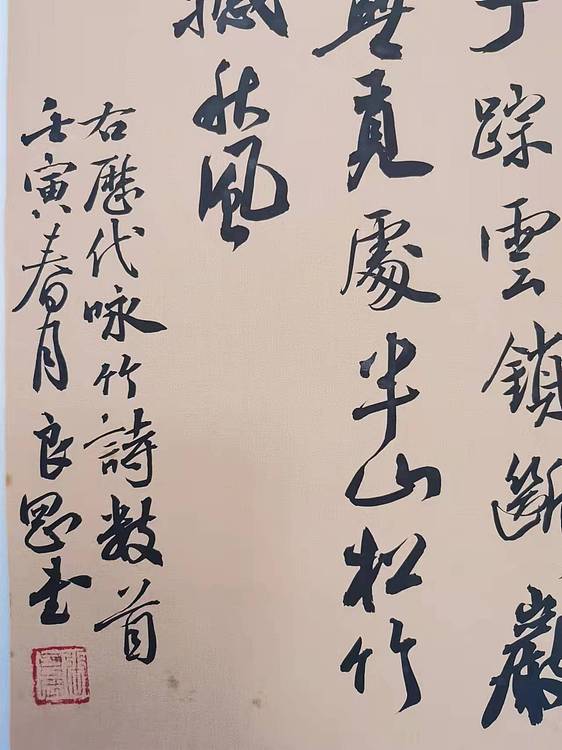 踪雲鎖斷巖
無覓處半山松竹
撼秋風
右歷代咏竹詩數首
壬寅春月良書